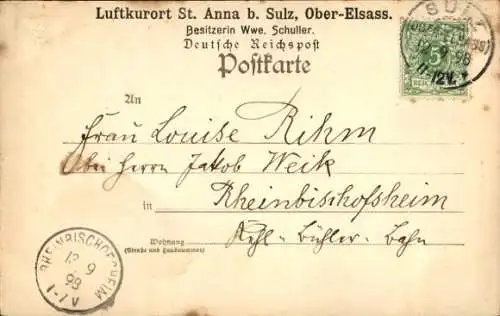 Luftkurort St. Anna b. Sulz, Ober-Elsass.
Besitzerin Wwe. Schuller.
Deutsche Reichspost
Postkarte
SULZ
98
11-12V.
5
An
Frau Louise Rihm
bei Herrn Jakob Weik
in Rheinbischofsheim
Wohnung
(Straße und Hausnummer)
Kehl-Bühler-Bahn
RHEINBISCHOFSHEIM
12 9
98